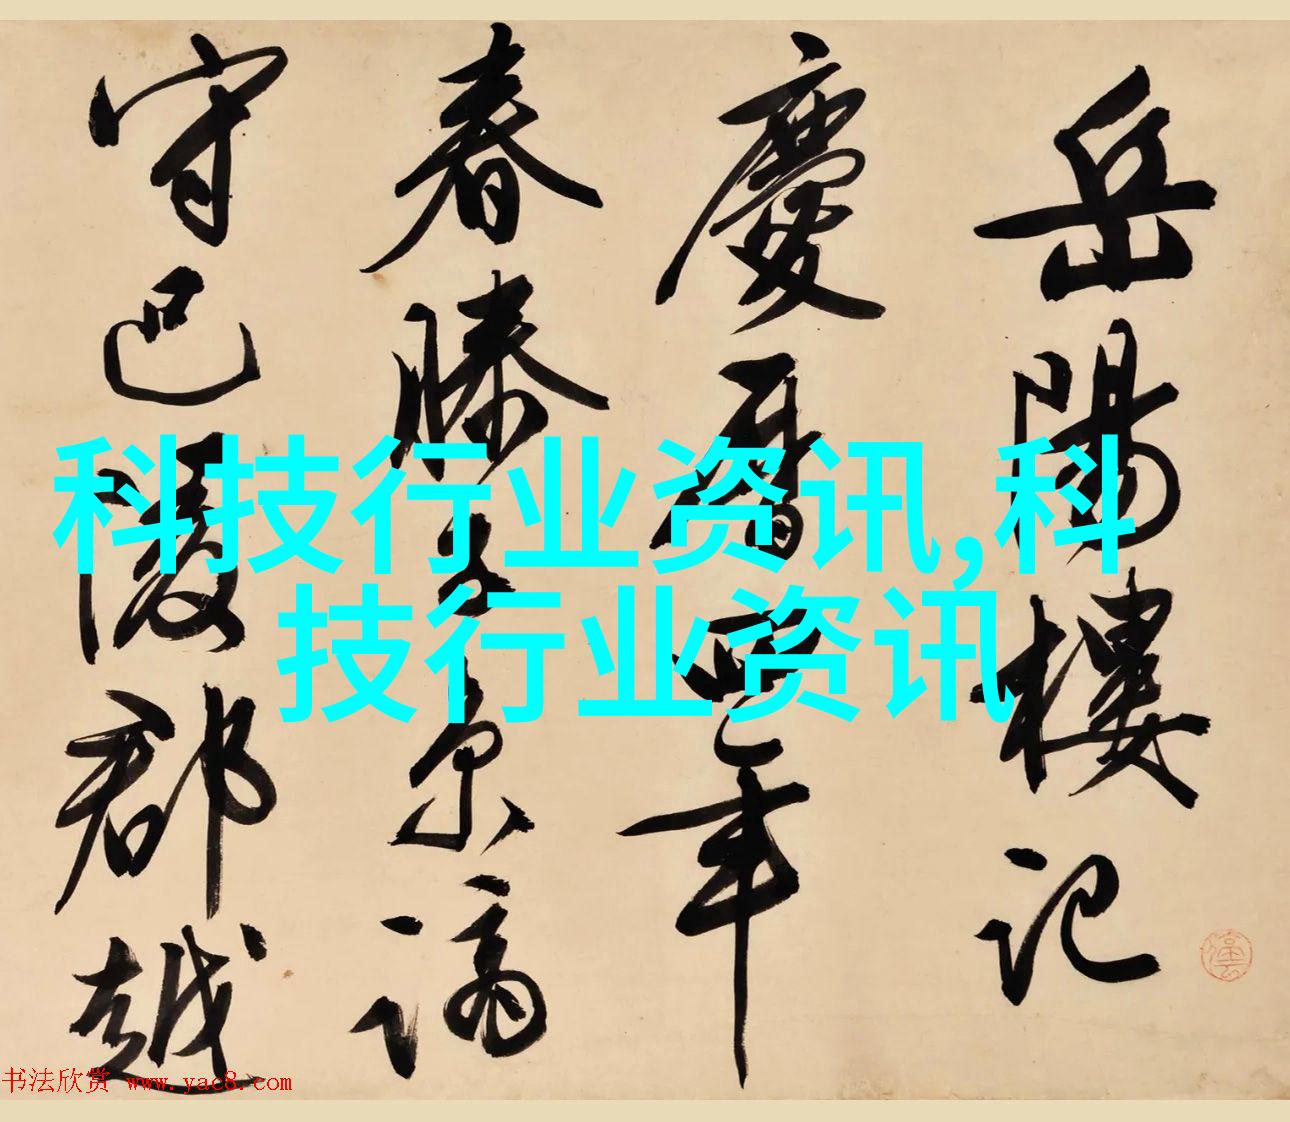 岳陽樓記
慶曆四年
春滕子京謫
守巴陵郡越
科技行业资讯,科
技行业资讯
书法欣赏 www.yac8.com